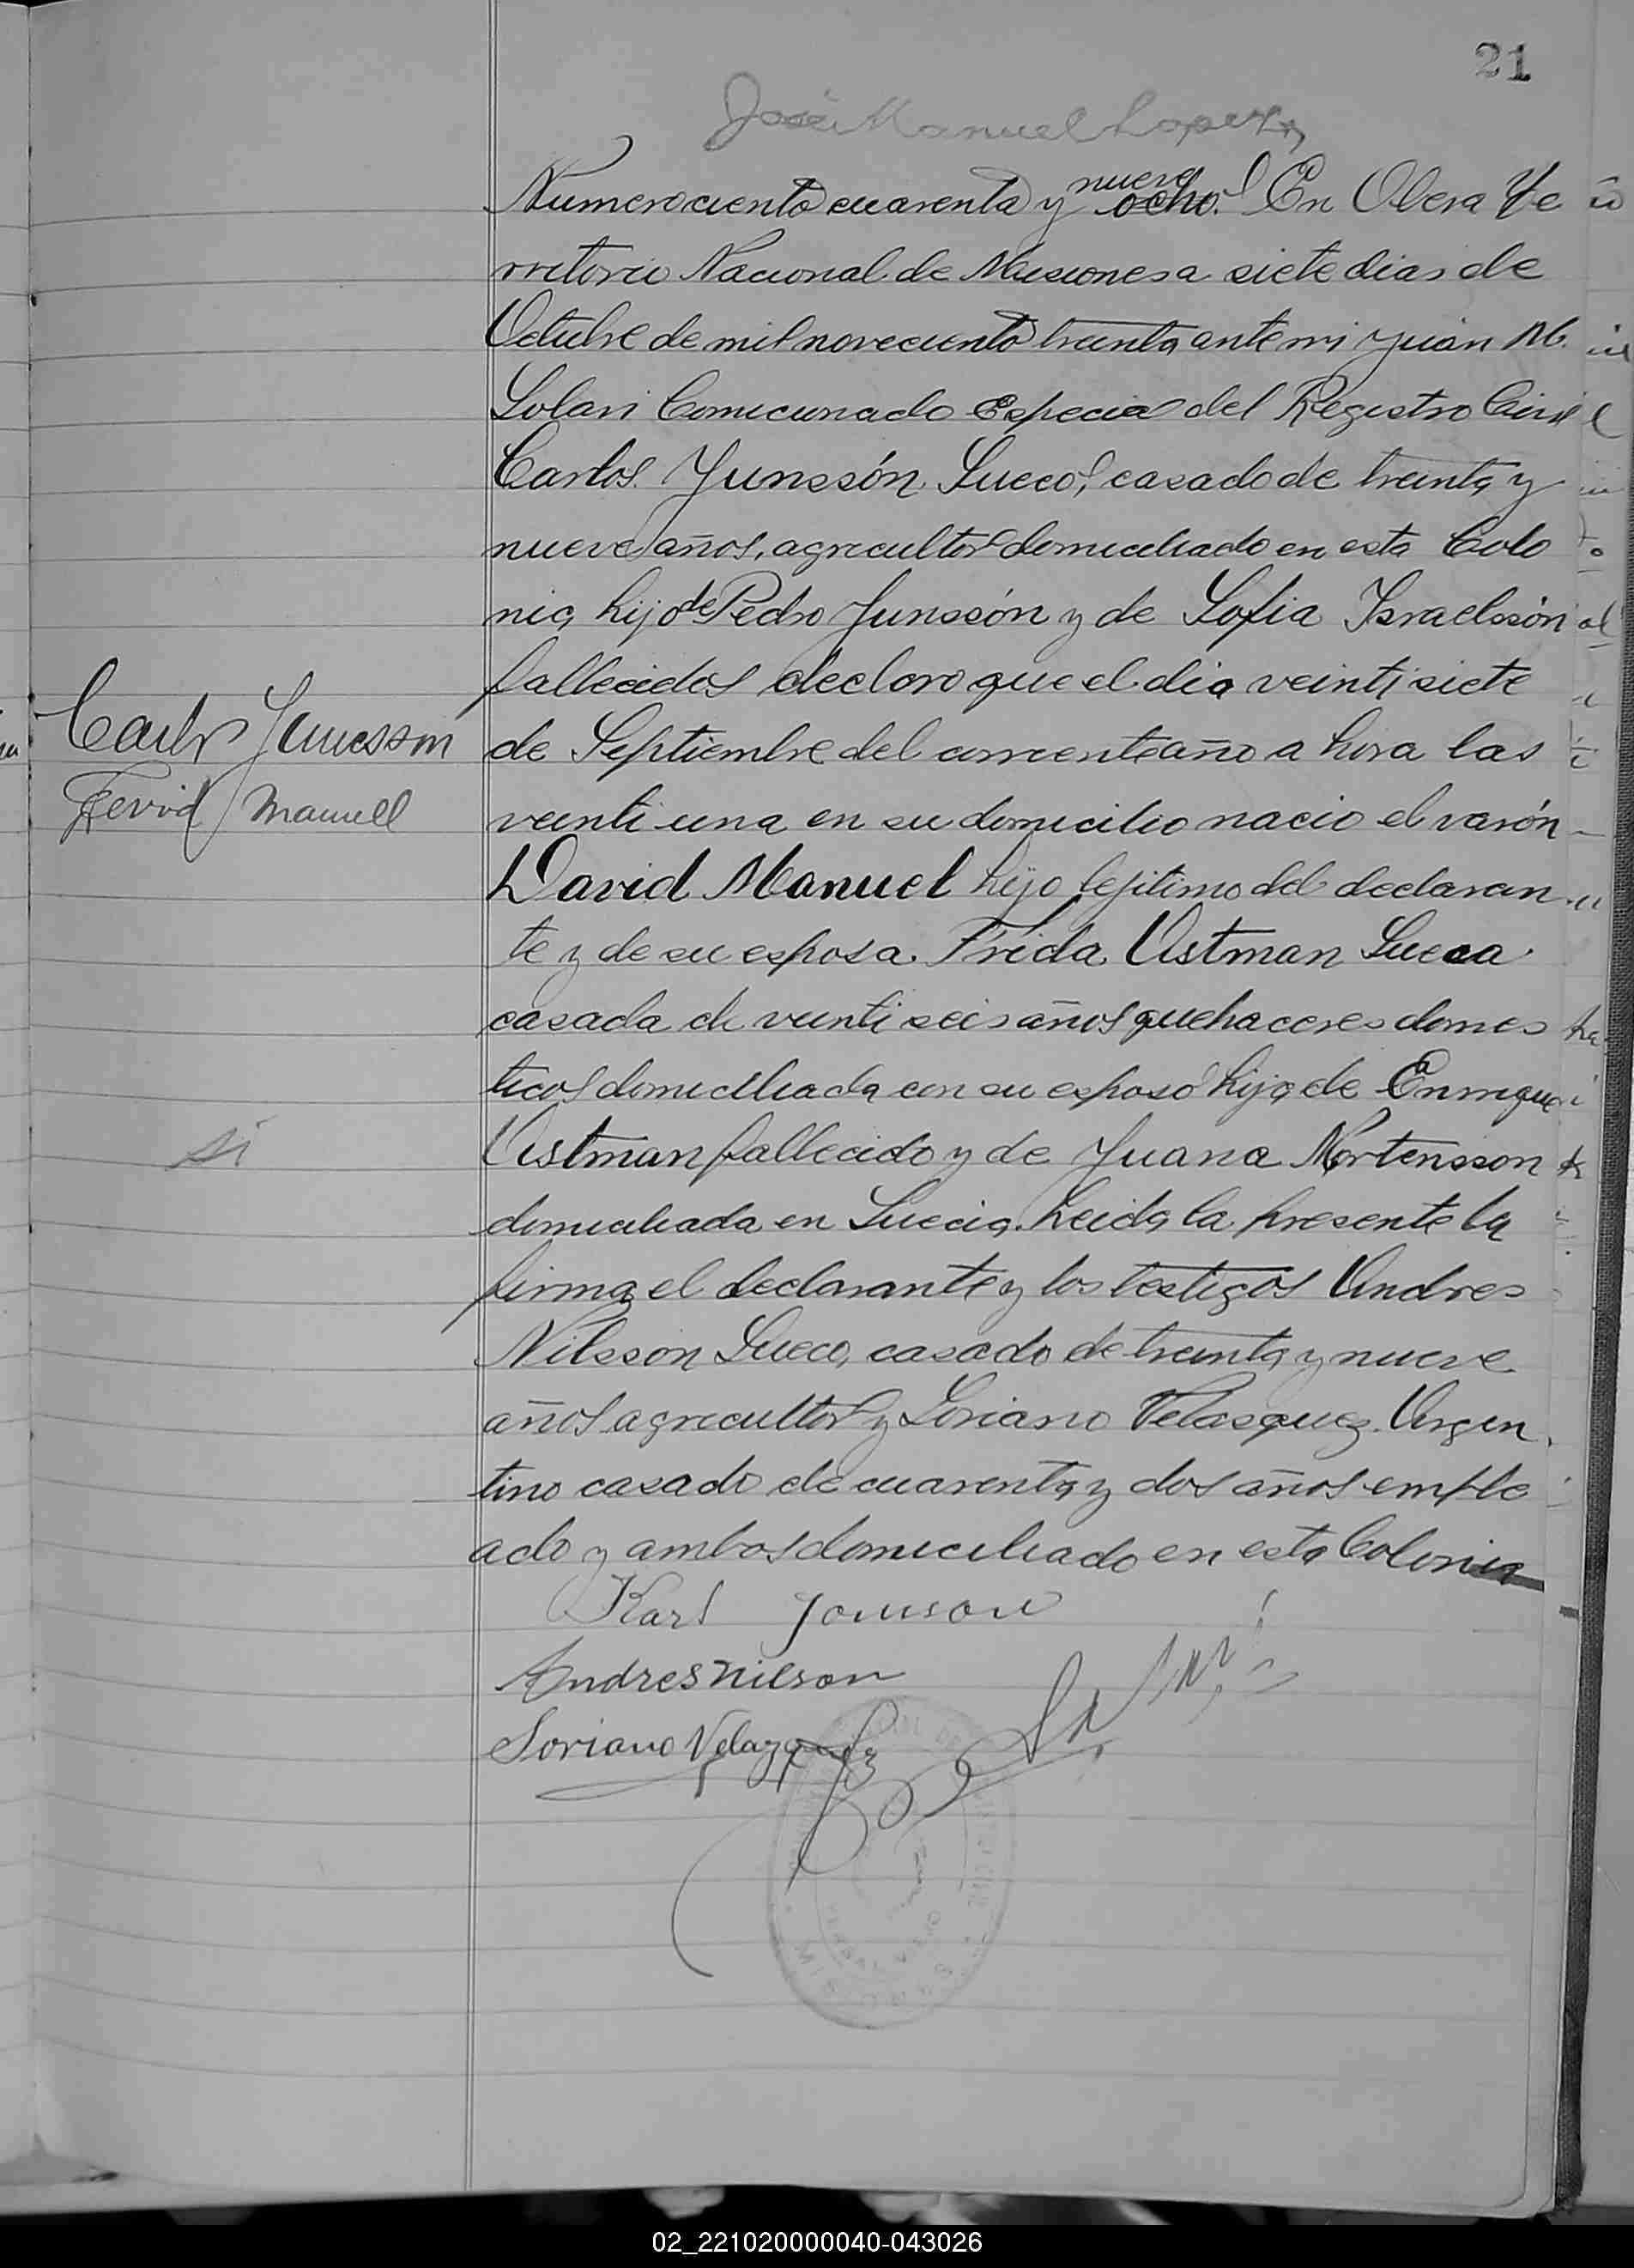 21
José Manuel Lopez
Numero ciento cuarenta y ocho. nueve En Obera Te
rritorio Nacional de Misiones a siete dias de
Octubre de mil noveciento treinta ante mi Juan M.
Solari Comicionado Especial del Registro Civil
Carlos Junssón Sueco, casado de treinta y
nueve años, agricultor domiciliado en esta Colo
nia, hijo de Pedro Junssón y de Sofia Israelssón
fallecidos declaro que el dia veinti siete
de Septiembre del corriente año a hora las
veinti una en su domicilio nacio el varón
David Manuel hijo lejitimo del declaran
te y de su esposa Frida Ustman Sueca
casada de veinti seis años quehaceres domes
ticos domiciliada con su esposo hija de Enrique
Ustman fallecido y de Juana Mortensson
domiciliada en Suecia. Leida la presente la
firma el declarante y los testigos Andres
Nilsson Sueco, casado de treinta y nueve
años agricultor y Soriano Velasquez Argen
tino casado de cuarenta y dos años emple
ado y ambos domiciliado en esta Colonia
Carlos Junesson
David Manuell
si
Karl Jonnson
Andres Nilson
Soriano Velazquez
02_221020000040-043026